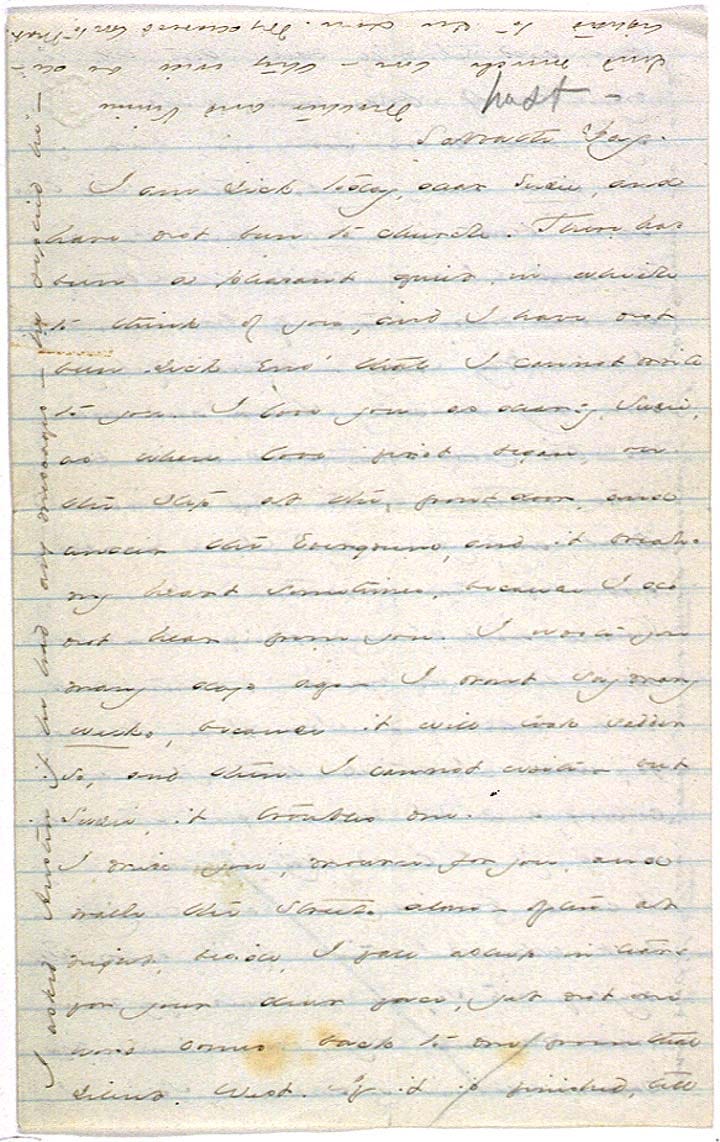 Sabbath Day.
I am sick today, dear Susie, and
have not been to church. There has
been a pleasant quiet, in which
to think of you, and I have not
been sick eno' that I cannot write
to you. I love you as dearly, Susie,
as when love first began, on
the step at the front door, and
under the Evergreens, and it breaks
my heart sometimes, because I do
not hear from you. I wrote you
many days ago - I wont say many
weeks, because it will look sadder
so, and then I cannot write - but
Susie, it troubles me.
I miss you, mourn for you, and
walk the Streets alone - often at
night, beside, I fall asleep in tears,
for your dear face, yet not one
word comes back to me from that
silent West. If it is finished, tell
I asked Austin if he had any messages - he replied he -
Mother and Vinnie
send much love - they will be de -
lighted to My dearest love to Mat.